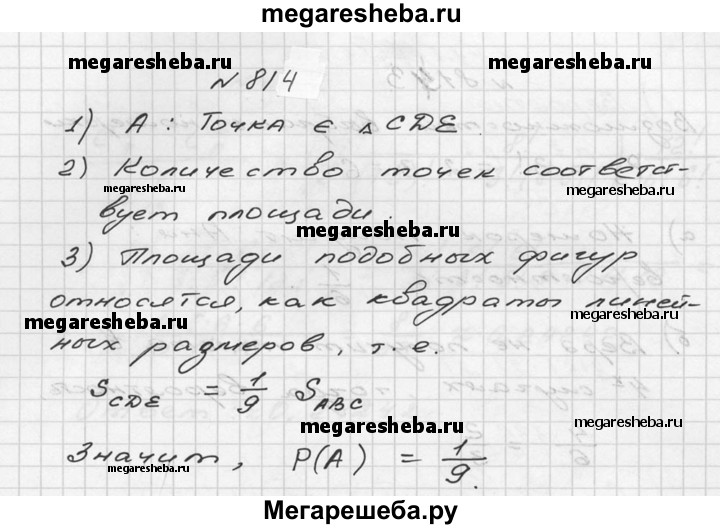 megaresheba.ru
megaresheba.ru
megaresheba.ru
№ 814
1) A : Точка є △ CDE
2) Количество точек соответст-
megaresheba.ru
megaresheba.ru
вует площади.
megaresheba.ru
3) Площади подобных фигур
относятся, как квадраты линей-
megaresheba.ru
megaresheba.ru
ных размеров, т. е.
S CDE = 1/9 S ABC
megaresheba.ru
Значит, P(A) = 1/9.
megaresheba.ru
megaresheba.ru
Мегарешеба.ру